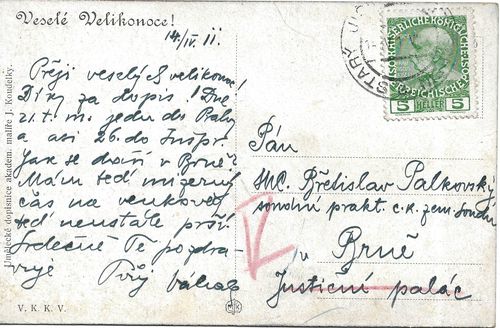 Veselé Velikonoce!
14/IV. 11.
Přeji veselých velikonoc!
Díky za dopis! Dne
21. t. m. jedu do
a asi 26. do
Jak se daří v Brně?
Mám teď mizerný
čas na venkově,
teď neustále prší.
Srdečně Tě pozdra-
vuje
Tvůj
Umělecké dopisnice akadem. malíře J. Koudelky.
V. K. K. V.
STARÝ JIČ
KAISERLICHE KÖNIGLICHE
ÖSTERREICHISCHE POST
5 HELLER 5
Pán
JUC. Břetislav Palkovský
soudní prakt. c. k. zem. soudu
v Brně
Justiční palác